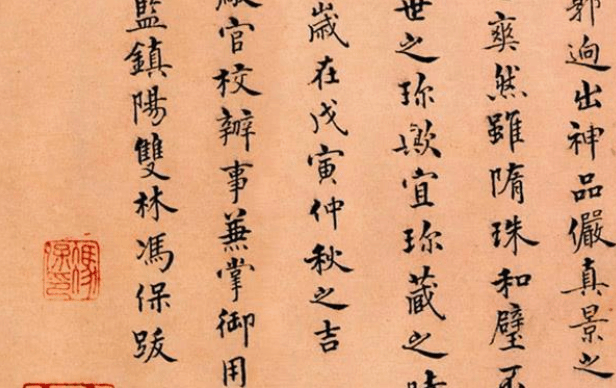 郭迥出神品儼真景之
爽然雖隋珠和璧不
世之珎歟宜珎藏之時
歲在戊寅仲秋之吉
廠官校辦事兼掌御用
監鎮陽雙林馮保跋
馮保印